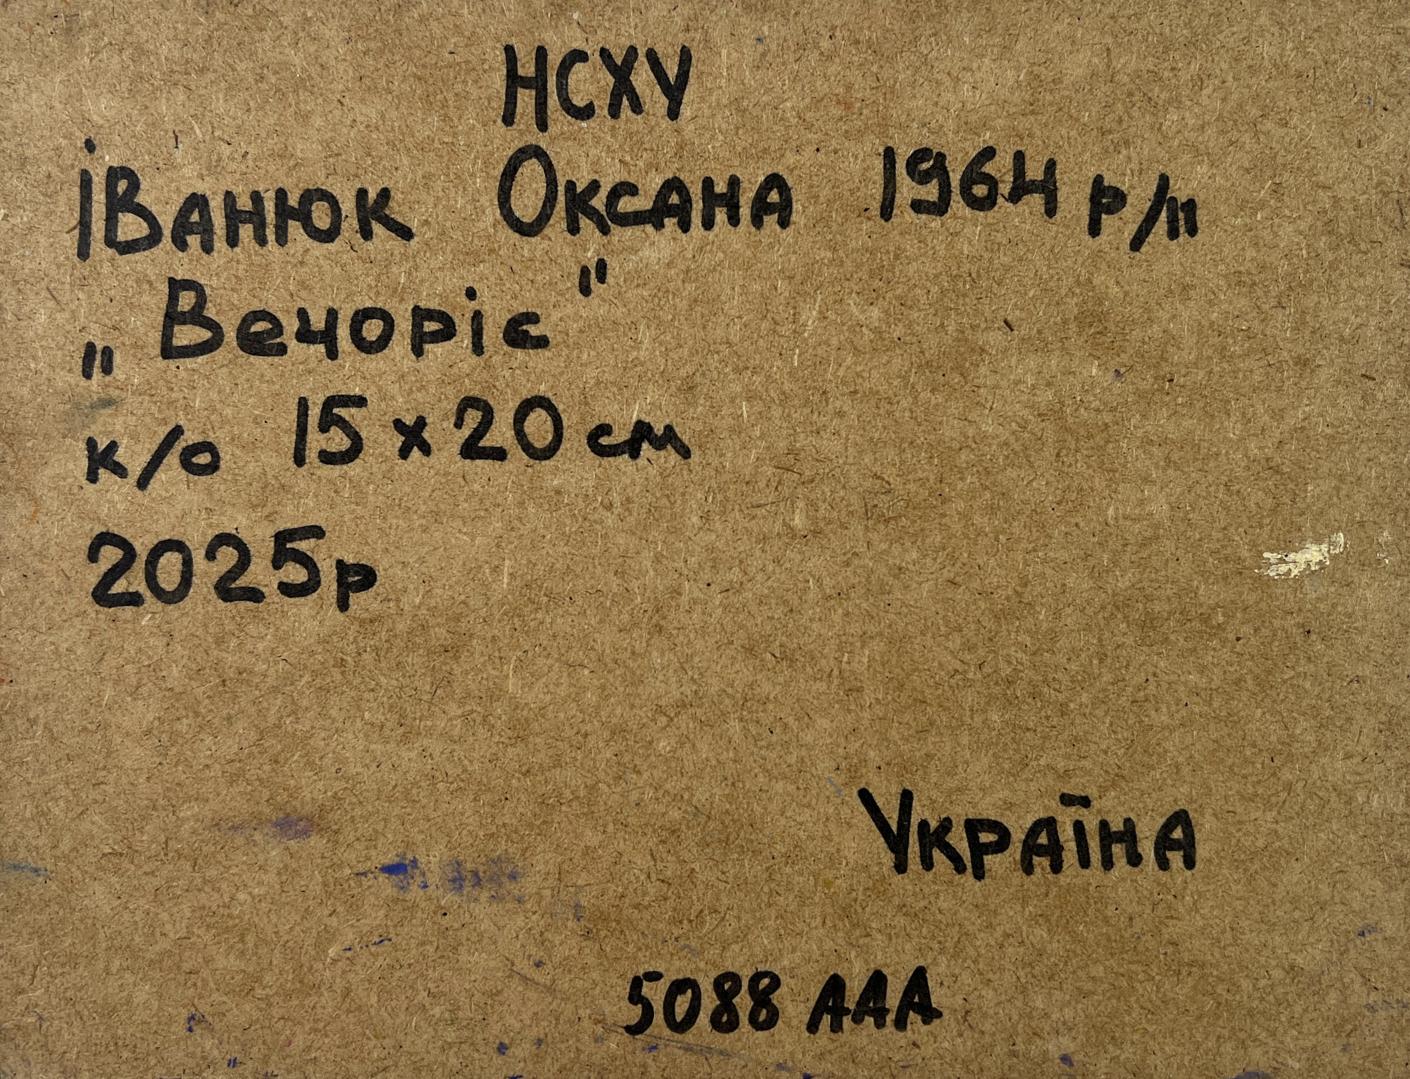 НСХУ
Іванюк Оксана 1964 р/н
„Вечоріє"
к/о 15 х 20 см
2025р
Україна
5088 ААА